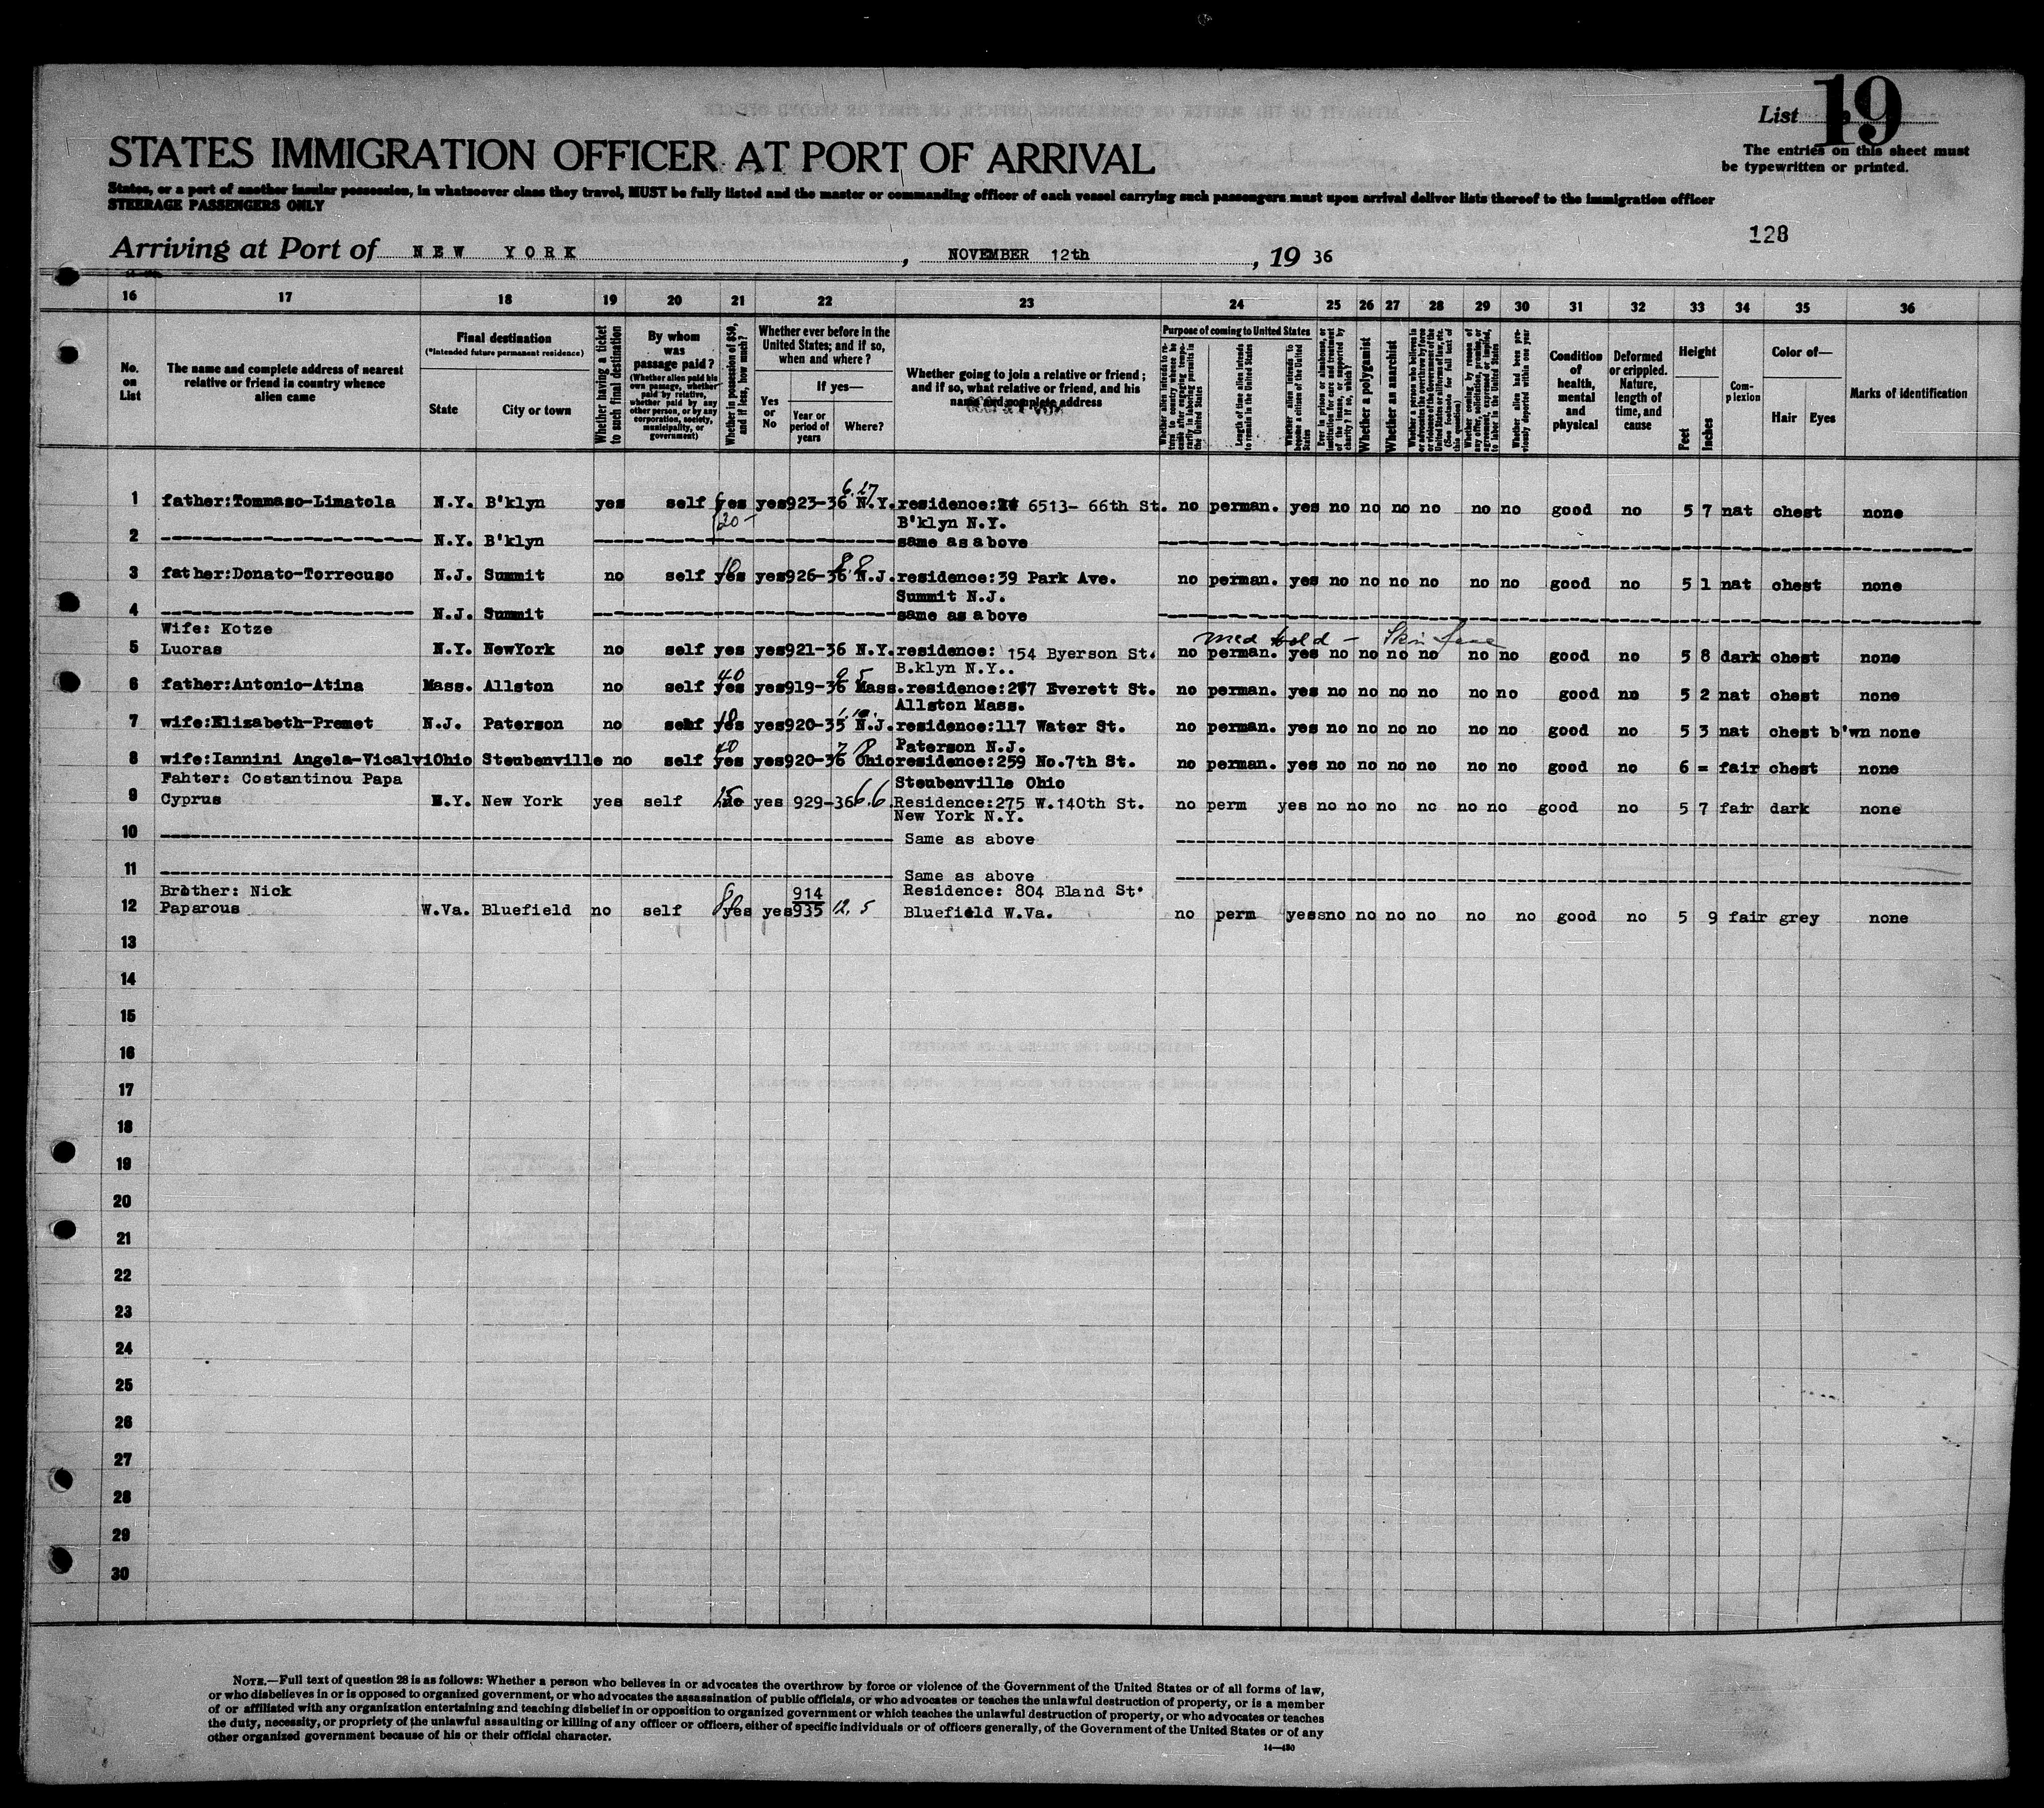 List 19
The entries on this sheet must
be typewritten or printed.
STATES IMMIGRATION OFFICER AT PORT OF ARRIVAL
States, or a port of another insular possession, in whatsoever class they travel, MUST be fully listed and the master or commanding officer of each vessel carrying such passengers must upon arrival deliver lists thereof to the immigration officer
STEERAGE PASSENGERS ONLY
128
Arriving at Port of NEW YORK, NOVEMBER 12th, 19 36
16 17 18 19 20 21 22 23 24 25 26 27 28 29 30 31 32 33 34 35 36
No. on List
The name and complete address of nearest relative or friend in country whence alien came
Final destination
(*Intended future permanent residence)
State
City or town
Whether having a ticket to such final destination
By whom was passage paid?
(Whether alien paid his own passage, whether paid by relative, whether paid by any other person, or by any corporation, society, municipality, or government)
Whether in possession of $50, and if less, how much?
Whether ever before in the United States; and if so, when and where?
Yes or No
If yes—
Year or period of years
Where?
Whether going to join a relative or friend; and if so, what relative or friend, and his name and complete address
Purpose of coming to United States
Whether alien intends to return to country whence he came after engaging temporarily in laboring pursuits in the United States
Length of time alien intends to remain in the United States
Whether alien intends to become a citizen of the United States
Ever in prison or almshouse, or institution for care and treatment of the insane, or supported by charity? If so, which?
Whether a polygamist
Whether an anarchist
Whether a person who believes in or advocates the overthrow by force or violence of the Government of the United States or all forms of law, etc. (See footnote for full text of this question)
Whether coming by reason of any offer, solicitation, promise, or agreement, expressed or implied, to labor in the United States
Whether alien had been previously deported within one year
Condition of health, mental and physical
Deformed or crippled. Nature, length of time, and cause
Height
Feet
Inches
Complexion
Color of—
Hair
Eyes
Marks of identification
6.27
1 father:Tommaso-Limatola N.Y. B'klyn yes self yes yes 923-36 N.Y. residence: 6513- 66th St. no perman. yes no no no no no no good no 5 7 nat chest none
20- B'klyn N.Y.
2 N.Y. B'klyn same as above
3 father:Donato-Torrecuso N.J. Summit no self yes 10 yes 926-36 8.8 N.J. residence:39 Park Ave. no perman. yes no no no no no no good no 5 1 nat chest none
Summit N.J.
4 N.J. Summit same as above
Wife: Kotze med held - Skin
5 Luoras N.Y. NewYork no self yes yes 921-36 N.Y. residence: 154 Byerson St. no perman. yes no no no no no no good no 5 8 dark chest none
40 9 5 B.klyn N.Y..
6 father:Antonio-Atina Mass. Allston no self yes yes 919-36 Mass. residence:277 Everett St. no perman. yes no no no no no no good no 5 2 nat chest none
Allston Mass.
7 wife:Elizabeth-Premet N.J. Paterson no self yes 18 yes 920-35 N.J. residence:117 Water St. no perman. yes no no no no no no good no 5 3 nat chest b'wn none
40 7 8 Paterson N.J.
8 wife:Iannini Angela-Vicalvi Ohio Steubenville no self yes yes 920-36 Ohio residence:259 No.7th St. no perman. yes no no no no no no good no 6 = fair chest none
Fahter: Costantinou Papa Steubenville Ohio
9 Cyprus N.Y. New York yes self yes 929-36 6.6. Residence:275 W.140th St. no perm yes no no no no no no good no 5 7 fair dark none
New York N.Y.
10 Same as above
11 Same as above
Brother: Nick 914 Residence: 804 Bland St.
12 Paparous W.Va. Bluefield no self yes yes 935 12.5 Bluefield W.Va. no perm yes no no no no no no good no 5 9 fair grey none
13
14
15
16
17
18
19
20
21
22
23
24
25
26
27
28
29
30
NOTE.—Full text of question 28 is as follows: Whether a person who believes in or advocates the overthrow by force or violence of the Government of the United States or of all forms of law,
or who disbelieves in or is opposed to organized government, or who advocates the assassination of public officials, or who advocates or teaches the unlawful destruction of property, or is a member
of or affiliated with any organization entertaining and teaching disbelief in or opposition to organized government or which teaches the unlawful destruction of property, or who advocates or teaches
the duty, necessity, or propriety of the unlawful assaulting or killing of any officer or officers, either of specific individuals or of officers generally, of the Government of the United States or of any
other organized government because of his or their official character.
14—430